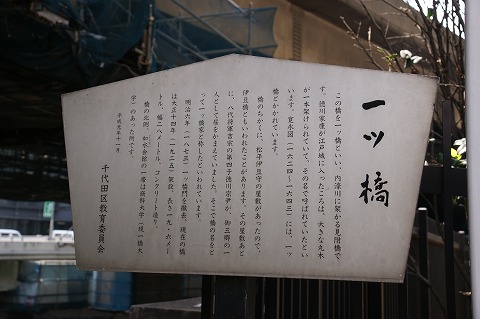 一ツ橋
この橋を一ッ橋といい、内濠川に架かる見附橋で
す。徳川家康が江戸城に入ったころは、大きな丸木
が一本架けられていて、その名で呼ばれていたとい
います。寛永図(一六二四-一六四三)には、一ッ
橋とかかれています。
橋のちかくに、松平伊豆守の屋敷があったので、
伊豆橋ともいわれたことがあります。その屋敷あと
に、八代将軍吉宗の第四子徳川宗尹が、御三卿の一
人として居をかまえていました。そこで橋の名をと
って一ッ橋家と称したといわれています。
明治六年(一八七三)一ッ橋門を撤去、現在の橋
は大正十四年(一九二五)架設、長さ一九・六メー
トル、幅二八メートル、コンクリート造り。
橋の北側一如水会館の一帯は商科大学(現一橋大
学)のあった所です。
平成元年十一月
千代田区教育委員会